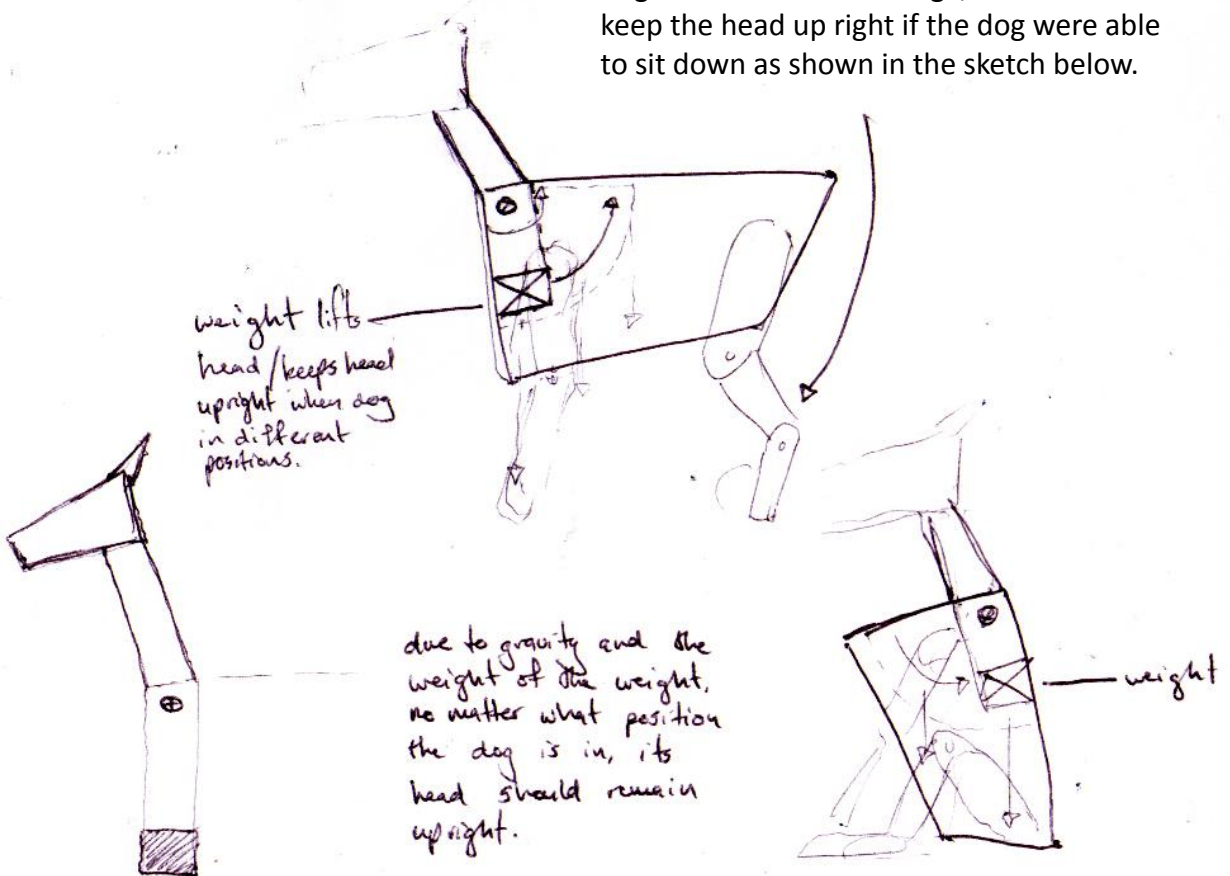 keep the head up right if the dog were able
to sit down as shown in the sketch below.
weight lifts
head/keeps head
upright when dog
in different
positions.
due to gravity and the
weight of the weight,
no matter what position
the dog is in, its
head should remain
upright.
weight